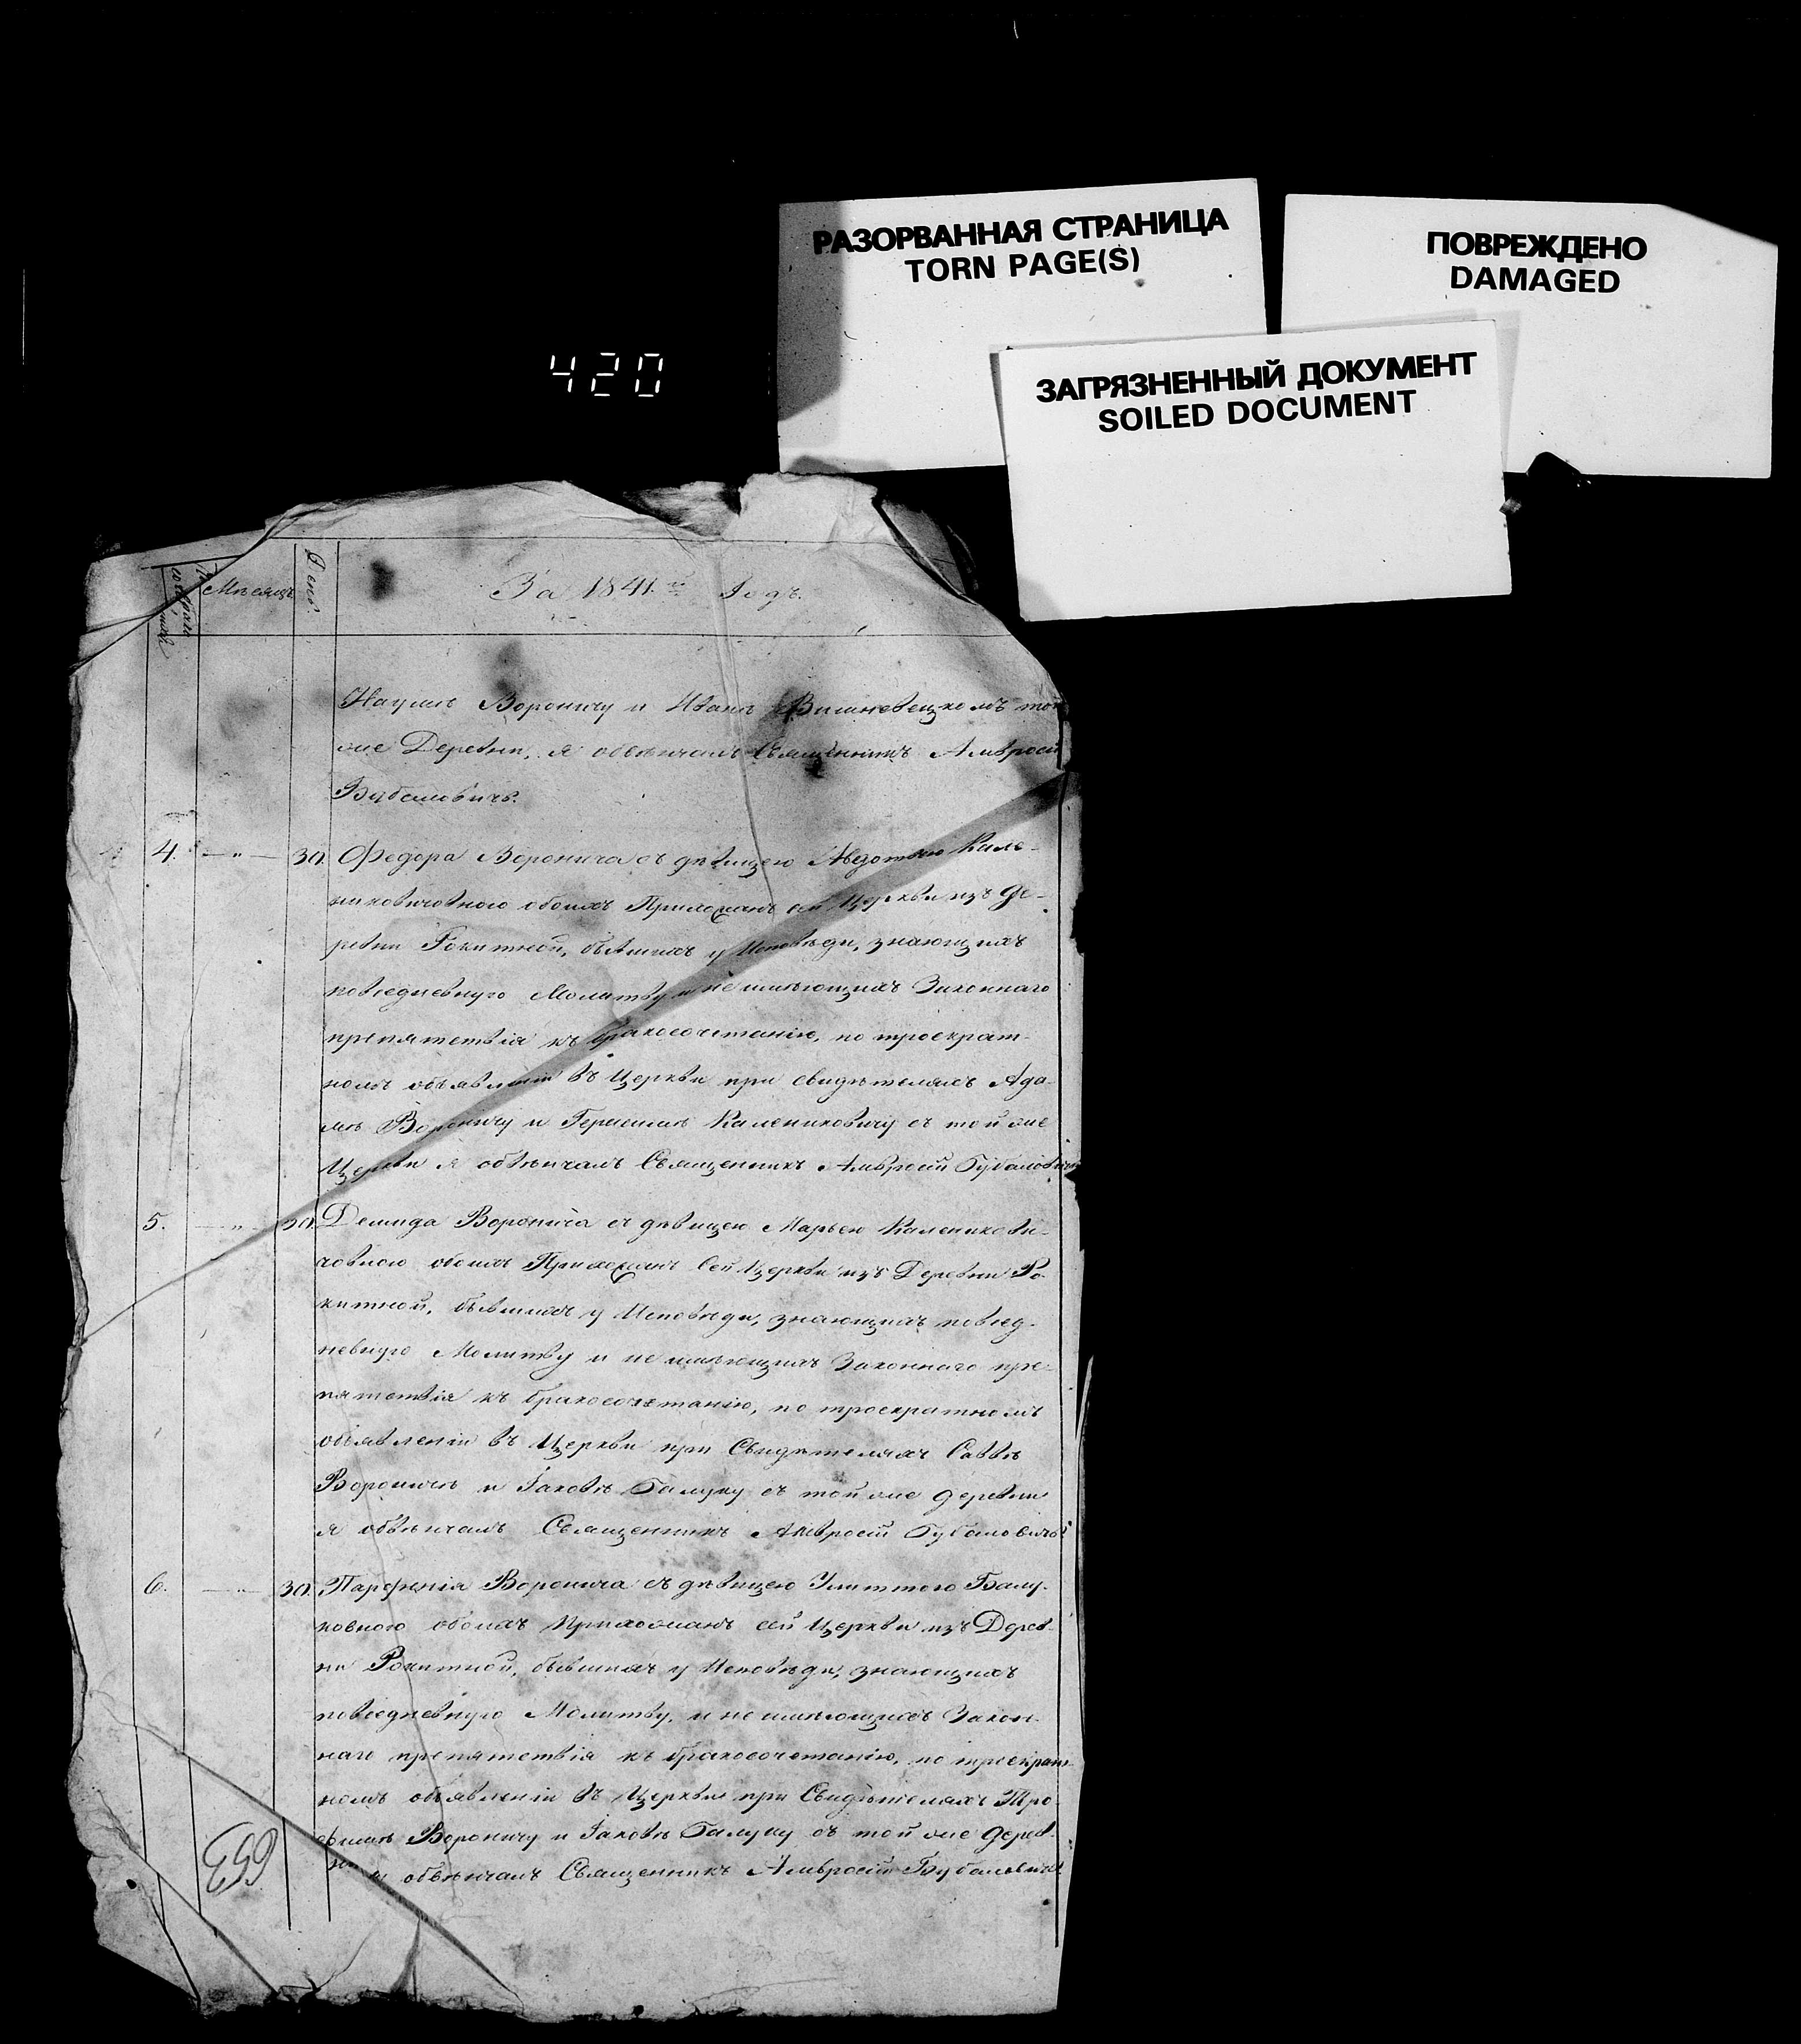 РАЗОРВАННАЯ СТРАНИЦА
TORN PAGE(S)
ПОВРЕЖДЕНО
DAMAGED
ЗАГРЯЗНЕННЫЙ ДОКУМЕНТ
SOILED DOCUMENT
420
Мѣсяцъ
День.
За 1841.й Годъ.
Наумѣ Вороничу и Иванѣ Вишневецкомъ той
же Деревни, я обвѣнчалъ Священникъ Амвросій
4. — „ — 30. Федора Воронича съ дѣвицею Авдотьею Кале-
никовичовною обоихъ Прихожанъ сей Церкви изъ де-
ревни Рокитной, бывшихъ у Исповѣди, знающихъ
повседневную Молитву и не имѣющихъ Законнаго
препятствія къ бракосочетанію, по троекрат-
номъ объявленіи въ Церкви при свидѣтеляхъ Ада-
мѣ Вороничу и Герасимѣ Калениковичу съ той же
Церкви я обвѣнчалъ Священникъ Амвросій Губаловичъ
5. — „ — 30. Демида Воронича съ дѣвицею Марьею Калениковы-
човною обоихъ Прихожанъ Сей Церкви изъ Деревни Ро-
китной, бывшихъ у Исповѣди, знающихъ повсед-
невную Молитву и не имѣющихъ Законнаго пре-
пятствія къ бракосочетанію, по троекратномъ
объявленіи въ Церкви при Свидѣтеляхъ Саввѣ
Вороничѣ и Іаковѣ Балуку съ той же деревни
я обвѣнчалъ Священникъ Амвросій Губаловичъ
6. — „ — 30. Парфенія Воронича съ дѣвицею Улиттою Балу-
ковною обоихъ Прихожанъ сей Церкви изъ Дерев-
ни Рокитной, бывшихъ у Исповѣди, знающихъ
повседневную Молитву, и не имѣющихъ Закон-
наго препятствія къ бракосочетанію, по троекрат-
номъ объявленіи въ Церкви при Свидѣтеляхъ Тро-
фимѣ Вороничу и Іаковѣ Балуку съ той же дерев-
ни я обвѣнчалъ Священникъ Амвросій
653